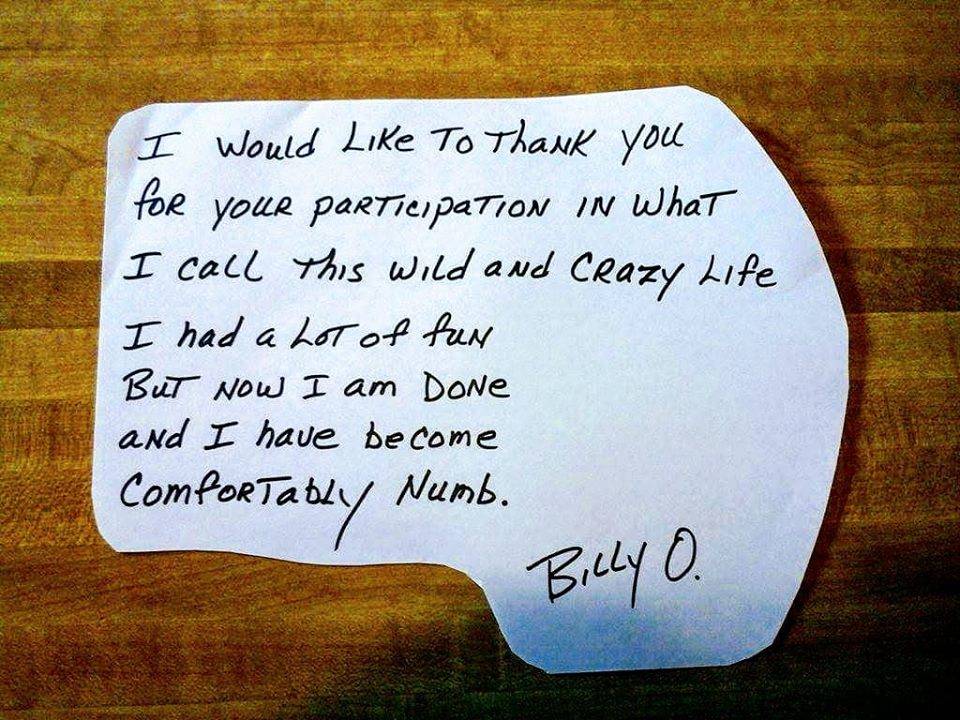 I would Like To Thank you
for your participation in what
I call this wild and crazy Life
I had a Lot of fun
But now I am Done
and I have become
Comfortably Numb.
Billy O.